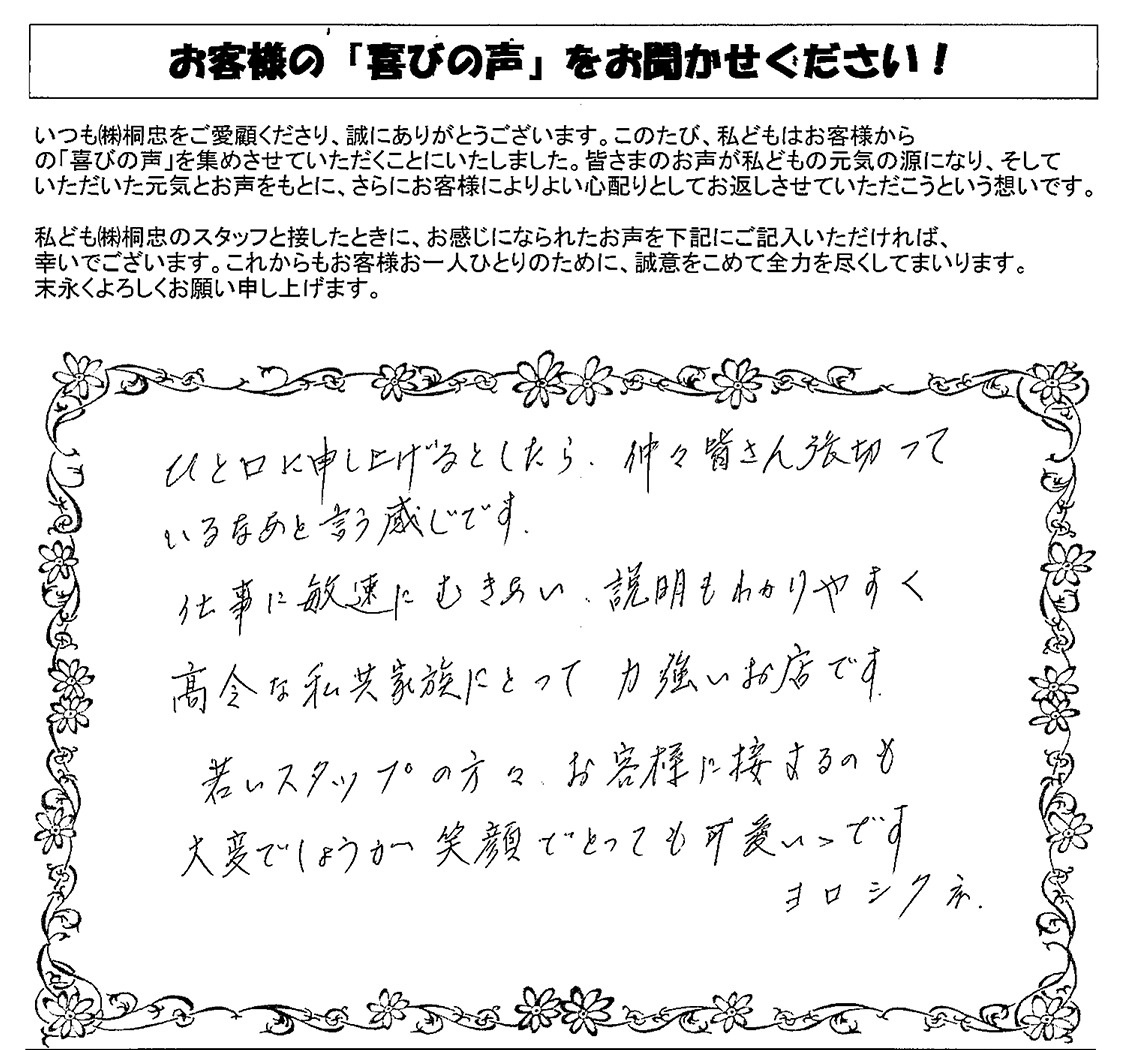 お客様の「喜びの声」をお聞かせください！
いつも㈱桐忠をご愛顧くださり、誠にありがとうございます。このたび、私どもはお客様から
の「喜びの声」を集めさせていただくことにいたしました。皆さまのお声が私どもの元気の源になり、そして
いただいた元気とお声をもとに、さらにお客様によりよい心配りとしてお返しさせていただこうという想いです。
私ども㈱桐忠のスタッフと接したときに、お感じになられたお声を下記にご記入いただければ、
幸いでございます。これからもお客様お一人ひとりのために、誠意をこめて全力を尽くしてまいります。
末永くよろしくお願い申し上げます。
ひと口に申し上げるとしたら、仲々皆さん張切って
いるなあと言う感じです.
仕事に敏速にむきあい、説明もわかりやすく
高令な私共家族にとって 力強いお店です.
若いスタップの方々、お客様に接するのも
大変でしょうが 笑顔でとっても可愛いゝです
ヨロシクネ.